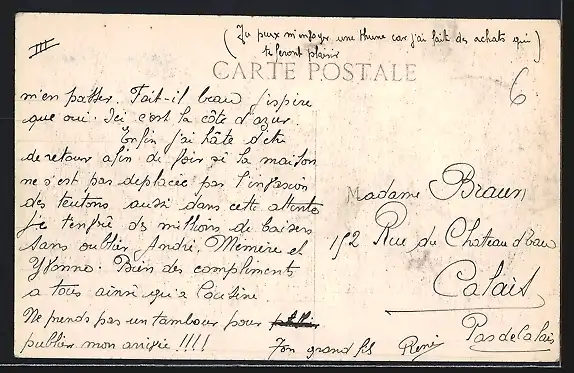 III
(Tu peux m'envoyer une thune car j'ai fait des achats qui
te feront plaisir)
CARTE POSTALE
6
m'en passer. Fait-il beau j'espère
que oui. Ici c'est la côte d'azur.
Enfin j'ai hâte d'etre
de retour afin de voir si la maison
ne s'est pas deplacée par l'invasion
des teutons aussi dans cette attente
je t'envoie des millions de baisers
sans oublier André, Mémère et
Yvonne. Bien des compliments
a tous ainsi qu'a Cousine
Ne prends pas un tambour pour
publier mon arrivée !!!!
Ton grand fils René
Madame Braun
152 Rue du Chateau d'eau
Calais
Pas de Calais